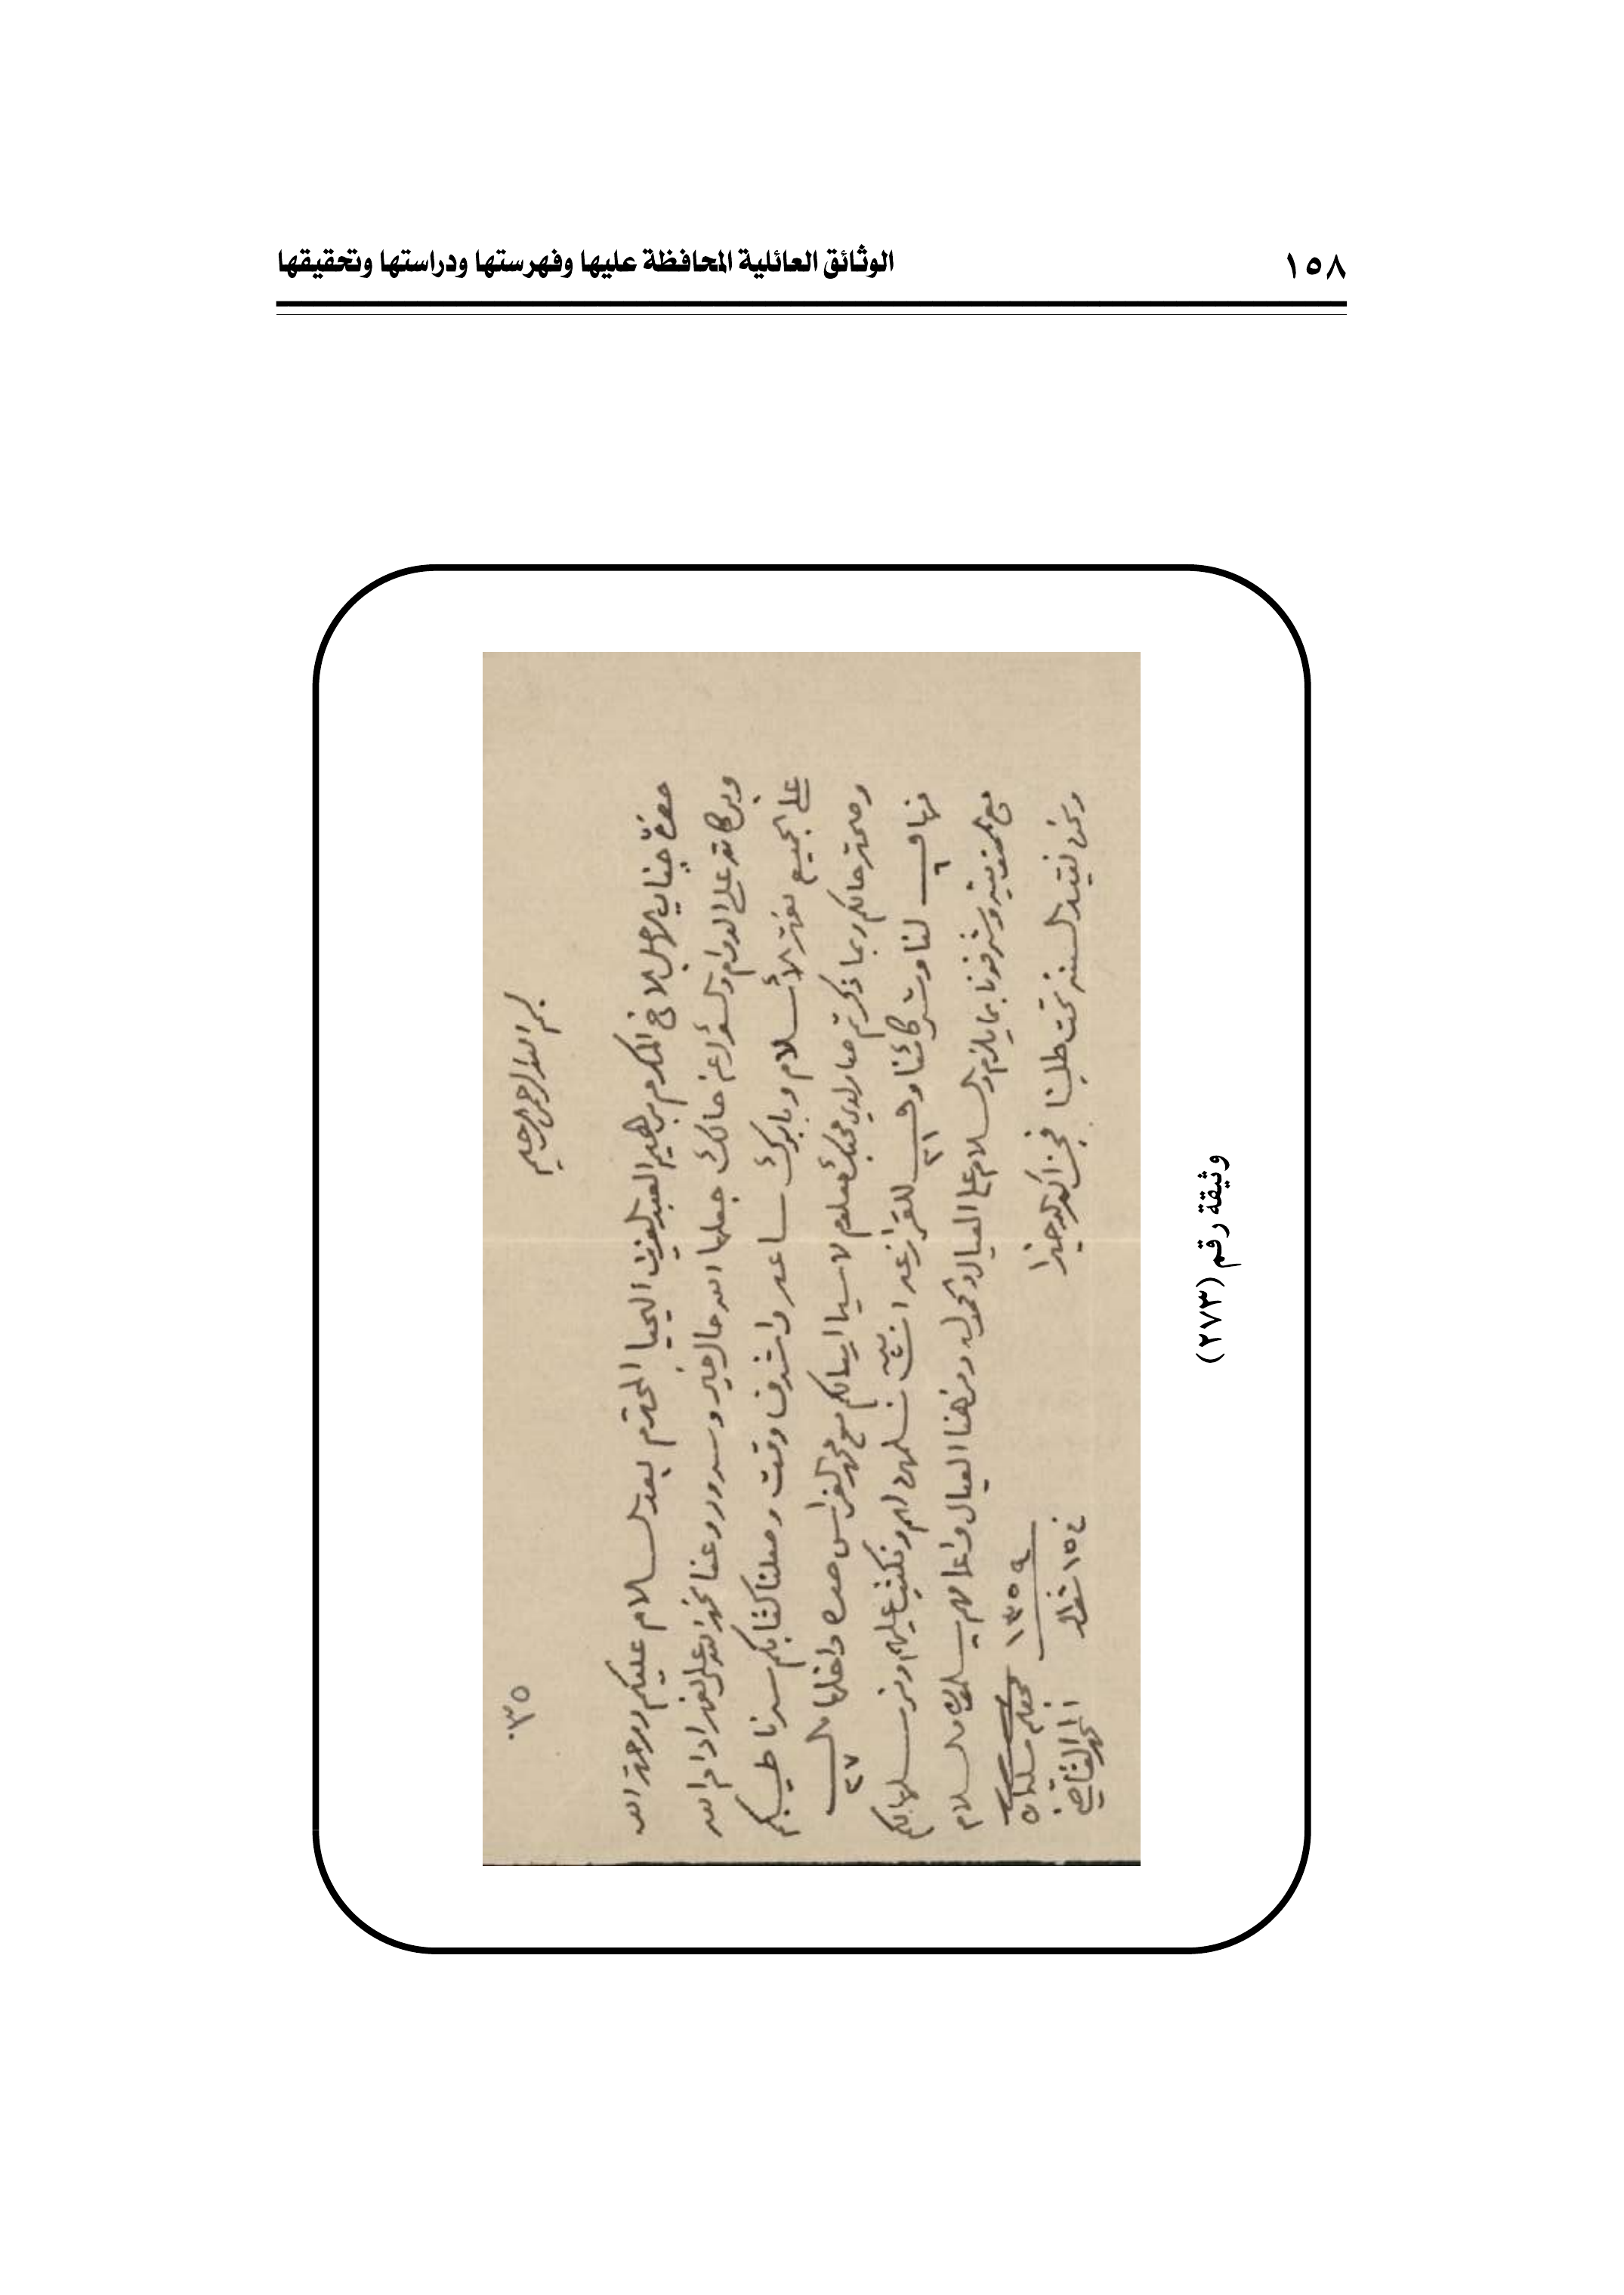 الوثائق العائلية المحافظة عليها وفهرستها ودراستها وتحقيقها
١٥٨
بسم الله الرحمن الرحيم
حضرة جناب الأجل الأخ المكرم برهيم العبدالعزيز اليحيا المحترم بعد السلام عليكم ورحمة الله
وبركاته على الدوام والسؤال عن حالك جعلها الله حال خير وسرور وعنا نحمد الله على نعمه ادام الله
على الجميع نعمة الأسلام وبابرك ساعه واشرف وقت وصلنا كتابكم سرنا طيبكم
وصحة حالكم وبما ذكرتم صار لدى محبك معلوم لا سيما ارسالكم مع محمد الفراس صره داخلها ٢٧
منها ٦ لنا وشركائنا و ٢١ للقرازعه ان نسلمهن لهم ونكتب عليهم ونرسلها لكم
وشرفونا بما يلزم والسلام على العيال والحمولة ومن هنا العيال واعمامهم يسلمون والسلام
ونحن نقيد السنه تحت طلبنا فجزاك الله خيرا
١٣٥٩
١٥ شوال
وثيقة رقم (٢٧٣)